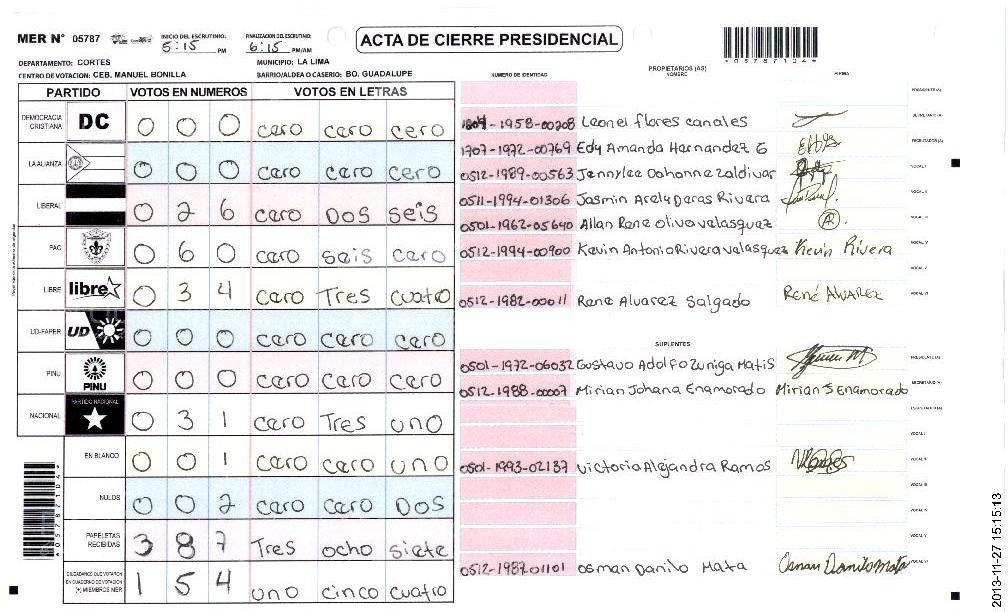 MER N° 05787
INICIO DEL ESCRUTINIO: 5:15 PM
FINALIZACION DEL ESCRUTINIO: 6:15 PM/AM
ACTA DE CIERRE PRESIDENCIAL
*05787104*
DEPARTAMENTO: CORTES
MUNICIPIO: LA LIMA
CENTRO DE VOTACION: CEB. MANUEL BONILLA
BARRIO/ALDEA O CASERIO: BO. GUADALUPE
PARTIDO VOTOS EN NUMEROS VOTOS EN LETRAS
DEMOCRACIA CRISTIANA DC 0 0 0 cero cero cero
LA ALIANZA 0 0 0 cero cero cero
LIBERAL 0 2 6 cero Dos seis
PAC 0 6 0 cero seis cero
LIBRE libre 0 3 4 cero Tres cuatro
UD-FAPER UD 0 0 0 cero cero cero
PINU PINU 0 0 0 cero cero cero
NACIONAL PARTIDO NACIONAL 0 3 1 cero Tres uno
EN BLANCO 0 0 1 cero cero uno
NULOS 0 0 2 cero cero Dos
PAPELETAS RECIBIDAS 3 8 7 Tres ocho siete
CIUDADANOS QUE VOTARON EN CUADERNO DE VOTACION (+) MIEMBROS MER 1 5 4 uno cinco cuatro
*05787104*
NUMERO DE IDENTIDAD
PROPIETARIOS (AS)
NOMBRE
FIRMA
PRESIDENTE(A)
-1958-00208 Leonel flores canales SECRETARIO(A)
1707-1972-00769 Edy Amanda Hernandez G ESCRUTADOR(A)
0512-1989-00563 Jennylee Zaldivar VOCAL I
0511-1994-01306 Jasmin Arely Deras Rivera VOCAL II
0501-1962-05640 Allan Rene oliva velasquez AR. VOCAL III
0512-1994-00900 Kevin Antonio Rivera velasquez Kevin Rivera VOCAL IV
VOCAL V
0512-1982-00011 Rene Alvarez Salgado René Alvarez VOCAL VI
SUPLENTES
0501-1972-06032 Gustavo Adolfo Zuniga Matis PRESIDENTE(A)
0512-1988-00007 Mirian Johana Enamorado Mirian J Enamorado SECRETARIO(A)
ESCRUTADOR(A)
VOCAL I
0501-1993-02137 victoria Alejandra Ramos VOCAL II
VOCAL III
VOCAL IV
VOCAL V
0512-1987-01101 osman Danilo Mata Osman Danilo Mata VOCAL VI
2013-11-27 15:15:13